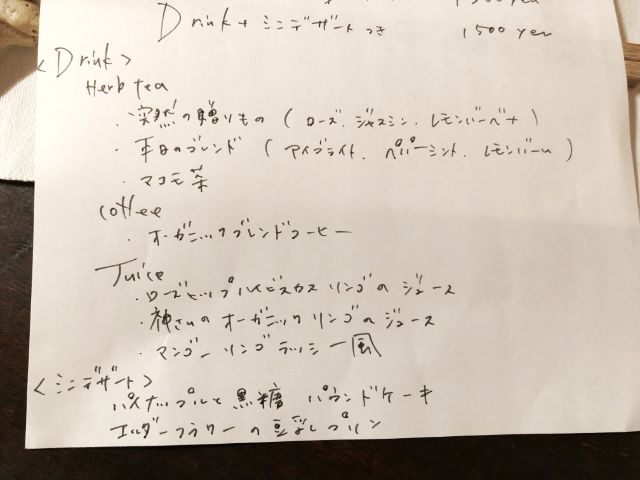 Drink + ミニデザートつき 1500 yen
<Drink>
Herb tea
・突然の贈りもの (ローズ、ジャスミン、レモンバーベナ)
・平日のブレンド (アイブライト、ペパーミント、レモンバーム)
・マコモ茶
Coffee
・オーガニックブレンドコーヒー
Juice
・ローズヒップハイビスカス リンゴのジュース
・神さんのオーガニックリンゴのジュース
・マンゴーリンゴラッシー風
<ミニデザート>
パイナップルと黒糖 パウンドケーキ
エルダーフラワーの豆乳プリン